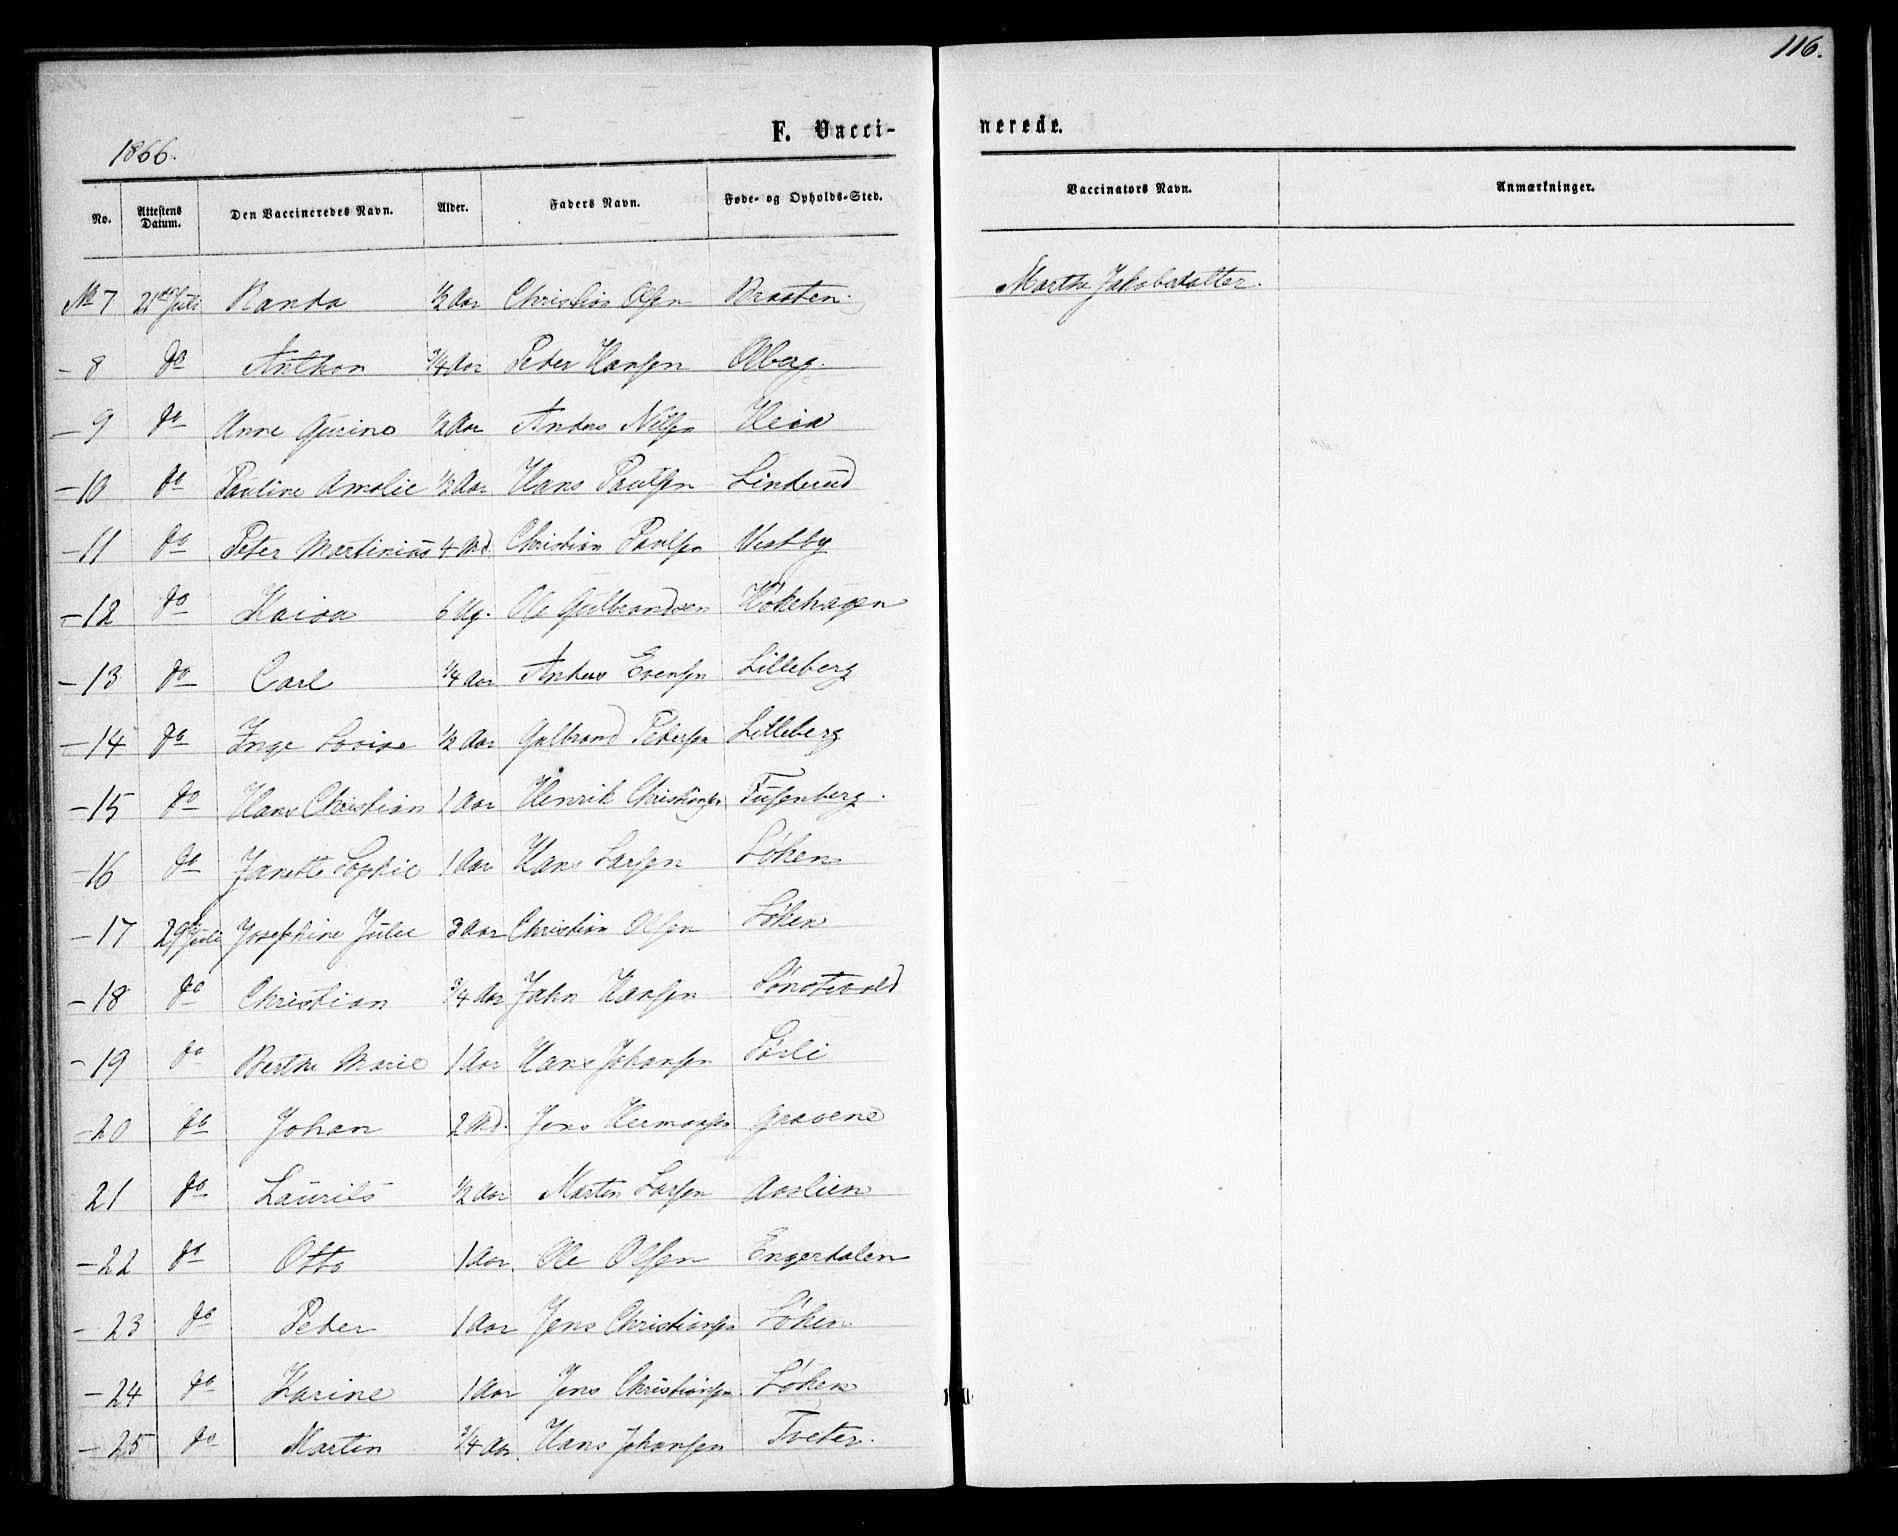 116.
1866.
F. Vacci-nerede.
No. Attestens Datum. Den Vaccineredes Navn. Alder. Faders Navn. Føde- og Opholds-Sted. Vaccinators Navn. Anmærkninger.
No 7 21de Juli Randa 1/2 Aar Christian Olsen Braaten. Marthe Jakobsdatter.
- 8 do Anthon 3/4 Aar Peder Hansen Olberg.
- 9 do Anne Gurine 1/2 Aar Anders Nilsen Heia
- 10 do Pauline Amalie 1/2 Aar Hans Paulsen Linderud
- 11 do Peter Martinius 4 Md. Christian Paulsen Vestby
- 12 do Kaisa 6 Ug. Ole Gulbrandsen Hokehagen
- 13 do Carl 3/4 Aar Anders Evensen Lilleberg
- 14 do Inge Lovise 1/2 Aar Gulbrand Pedersen Lilleberg
- 15 do Hans Christian 1 Aar Henrik Christiansen Tusenberg.
- 16 do Janette Sophie 1 Aar Hans Larsen Løken
- 17 29de Juli Josephine Julie 3 Aar Christian Olsen Løken
- 18 do Christian 3/4 Aar Jahn Hansen Sønstevold
- 19 do Berthe Marie 1 Aar Hans Johansen Sørli
- 20 do Johan 2 Md. Jens Hermansen Gravene
21 do Laurits 1/2 Aar Martin Larsen Aaslien
- 22 do Otto 1 Aar. Ole Olsen Engerdalen
- 23 do Peder 1 Aar Jens Christiansen Løken
- 24 do Karine 1 Aar Jens Christiansen Løken
- 25 do Martin 3/4 Aar. Hans Johansen Tveter.